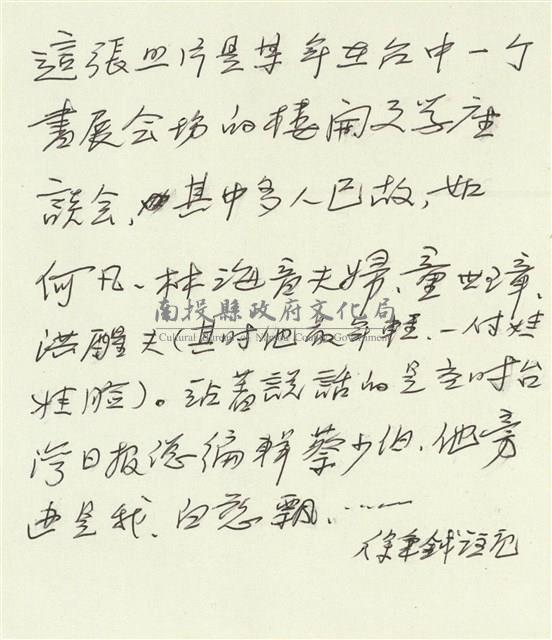 這張照片是某年在台中一个
書展会場的樓開文学座
談会，其中多人已故，如
何凡、林海音夫婦、童世璋、
南投縣政府文化局
Cultural Bureau of Nantou County Government
洪醒夫（其时他最年輕，一付娃
娃脸）。站著説話的是当时台
湾日报总编輯蔡少伯，他旁
边是我、白慈飄、……
徐秉鉞註记